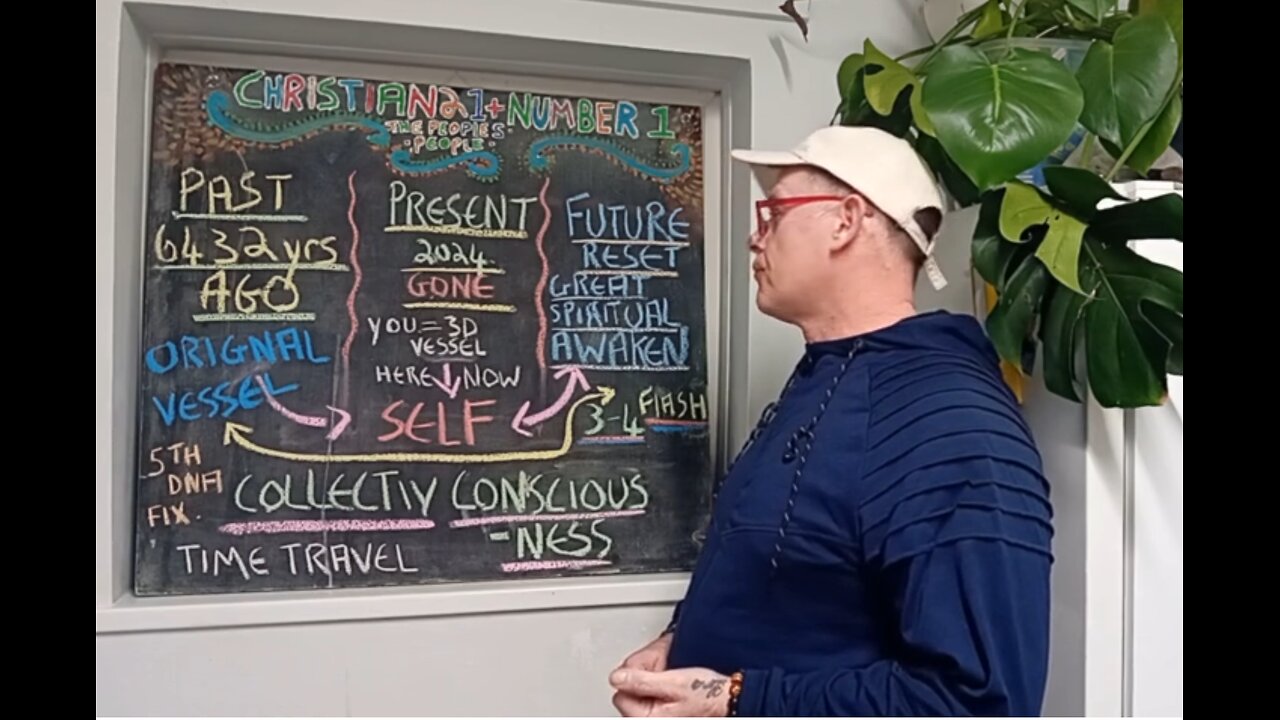 CHRISTIAN21+NUMBER 1
THE PEOPLE'S
·PEOPLE·
PAST
6432yrs
AGO
ORIGNAL
VESSEL
5TH
DNA
FIX.
PRESENT
2024
GONE
YOU=3D
VESSEL
HERE NOW
SELF
FUTURE
RESET
GREAT
SPIRITUAL
AWAKEN
3-4 FLASH
COLLECTIV CONSCIOUS
-NESS
TIME TRAVEL